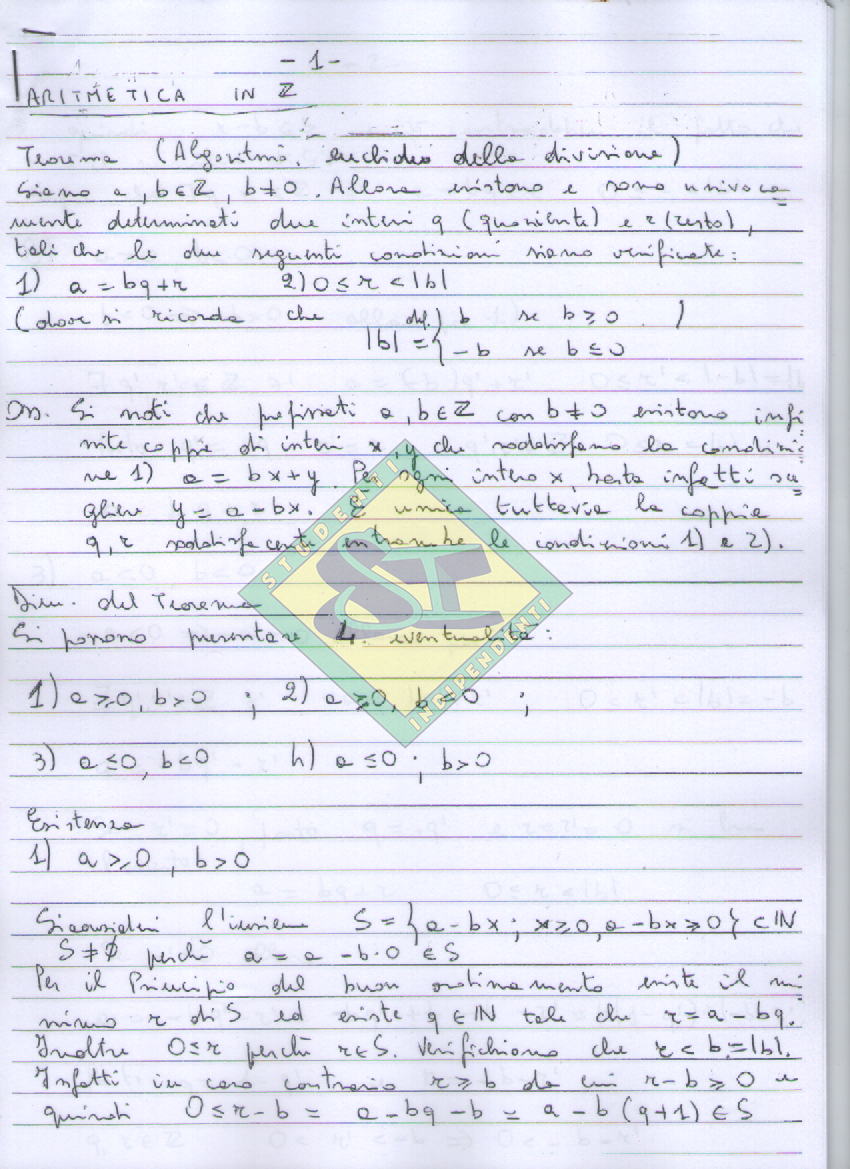 - 1 -
ARITMETICA IN ℤ
Teorema (Algoritmo euclideo della divisione)
Siano a, b ∈ ℤ, b ≠ 0. Allora esistono e sono univoca
mente determinati due interi q (quoziente) e r (resto),
tali che le due seguenti condizioni siano verificate:
1) a = bq + r 2) 0 ≤ r < |b|
(dove si ricorda che |b| def.= { b se b ≥ 0 )
- b se b ≤ 0
Oss. Si noti che prefissati a, b ∈ ℤ con b ≠ 0 esistono infi
nite coppie di interi x, y che soddisfano la condizio
ne 1) a = bx + y. Per ogni intero x, basta infatti sce
gliere y = a - bx. È unica tuttavia la coppia
q, r soddisfacente entrambe le condizioni 1) e 2).
Dim. del Teorema
Si possono presentare 4 eventualità:
1) a ≥ 0, b > 0 ; 2) a ≥ 0, b < 0 ;
3) a ≤ 0, b < 0 4) a ≤ 0 ; b > 0
Esistenza
1) a ≥ 0, b > 0
Si consideri l'insieme S = { a - bx ; x ≥ 0, a - bx ≥ 0 } ⊂ ℕ
S ≠ ∅ perché a = a - b·0 ∈ S
Per il Principio del buon ordinamento esiste il mi
nimo r di S ed esiste q ∈ ℕ tale che r = a - bq.
Inoltre 0 ≤ r perché r ∈ S. Verifichiamo che r < b = |b|.
Infatti in caso contrario r ≥ b da cui r - b ≥ 0 e
quindi 0 ≤ r - b = a - bq - b = a - b (q+1) ∈ S
STUDENTI
SI
INDIPENDENTI